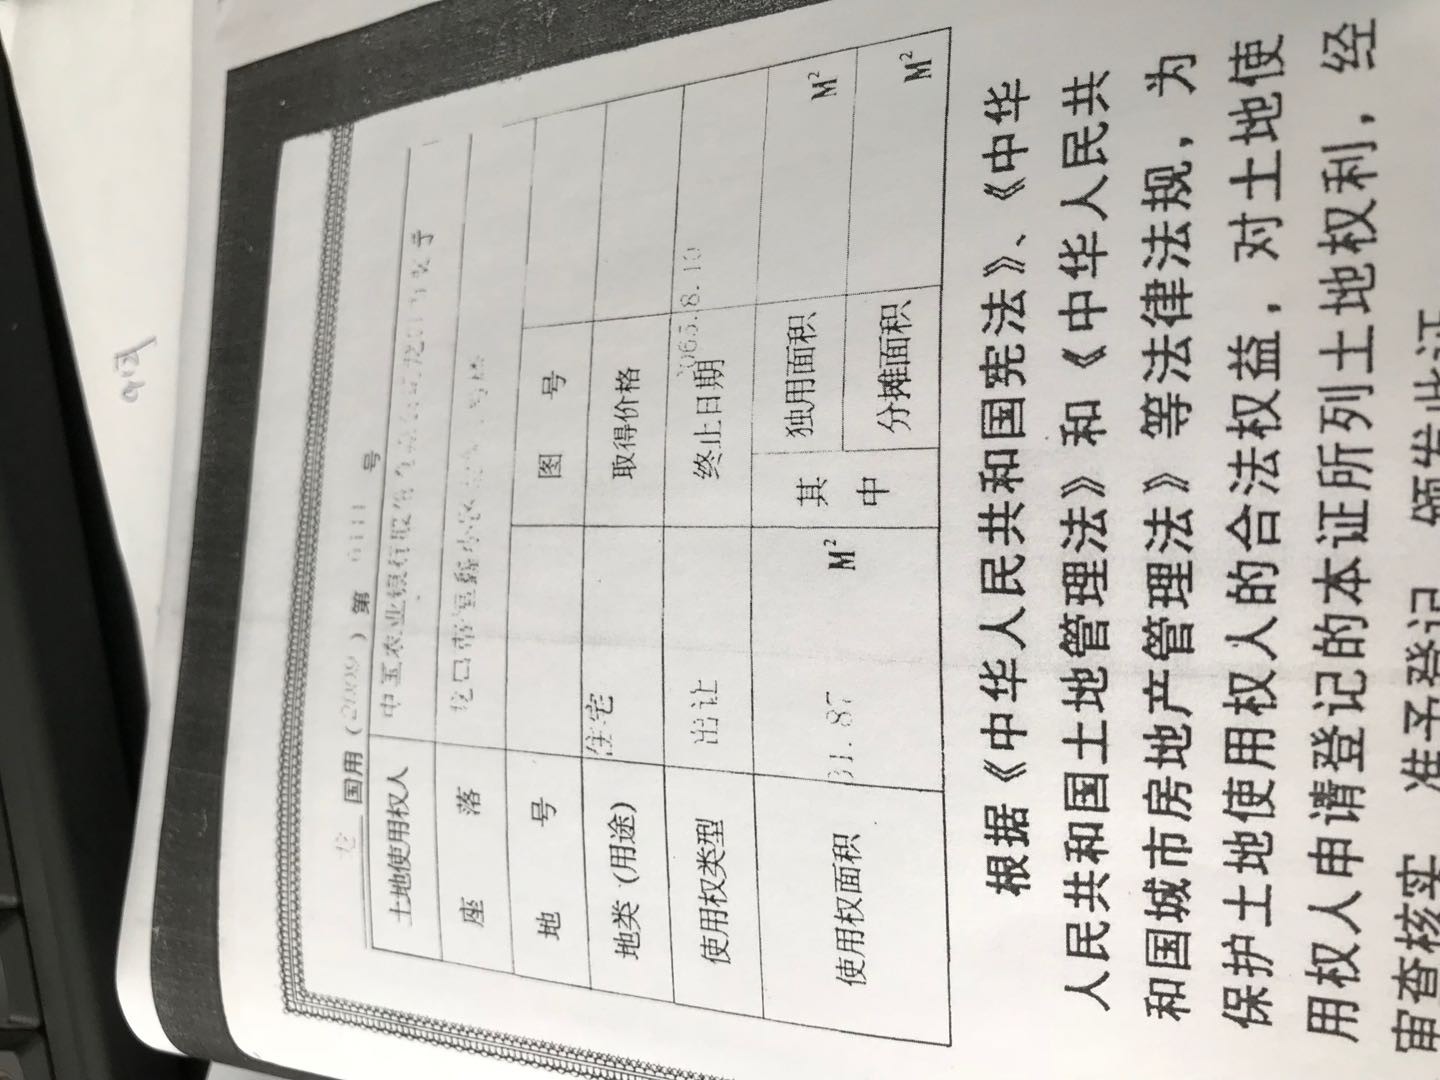 国用（2009）第 0111 号
土地使用权人 中国农业银行股份有
座 落
地 号 图 号
地类（用途） 住宅 取得价格
使用权类型 出让 终止日期 065.8.10
使用权面积 31.87 M² 其中 独用面积 M²
分摊面积 M²
根据《中华人民共和国宪法》、《中华
人民共和国土地管理法》和《中华人民共
和国城市房地产管理法》等法律法规，为
保护土地使用权人的合法权益，对土地使
用权人申请登记的本证所列土地权利，经
审查核实，准予登记，颁发此证